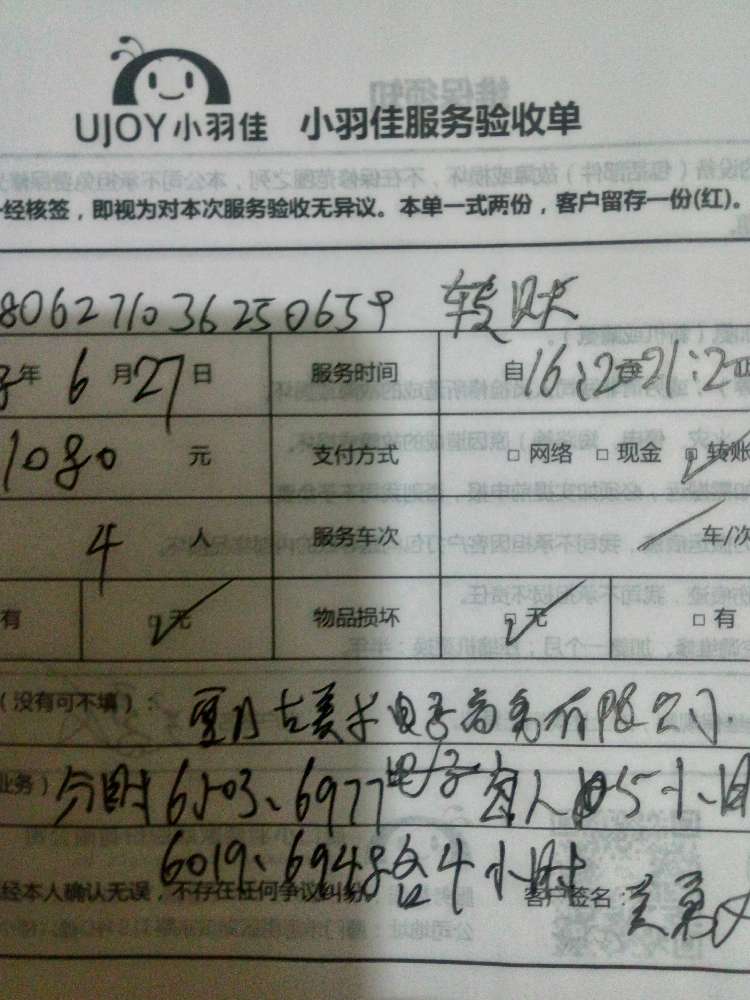 UJOY小羽佳 小羽佳服务验收单
经核签，即视为对本次服务验收无异议。本单一式两份，客户留存一份(红)。
806271036250659 转账
年 6 月 27 日 服务时间 自 16:2 至 21:2
1080 元 支付方式 □ 网络 □ 现金 □ 转账
4 人 服务车次 车/次
有 □ 无 物品损坏 □ 无 □ 有
（没有可不填）： 电子商务有限公司
业务） 分时 6503、6977 电子 人 5小时
6019、6948各4小时
经本人确认无误，不存在任何争议纠纷。 客户签名：